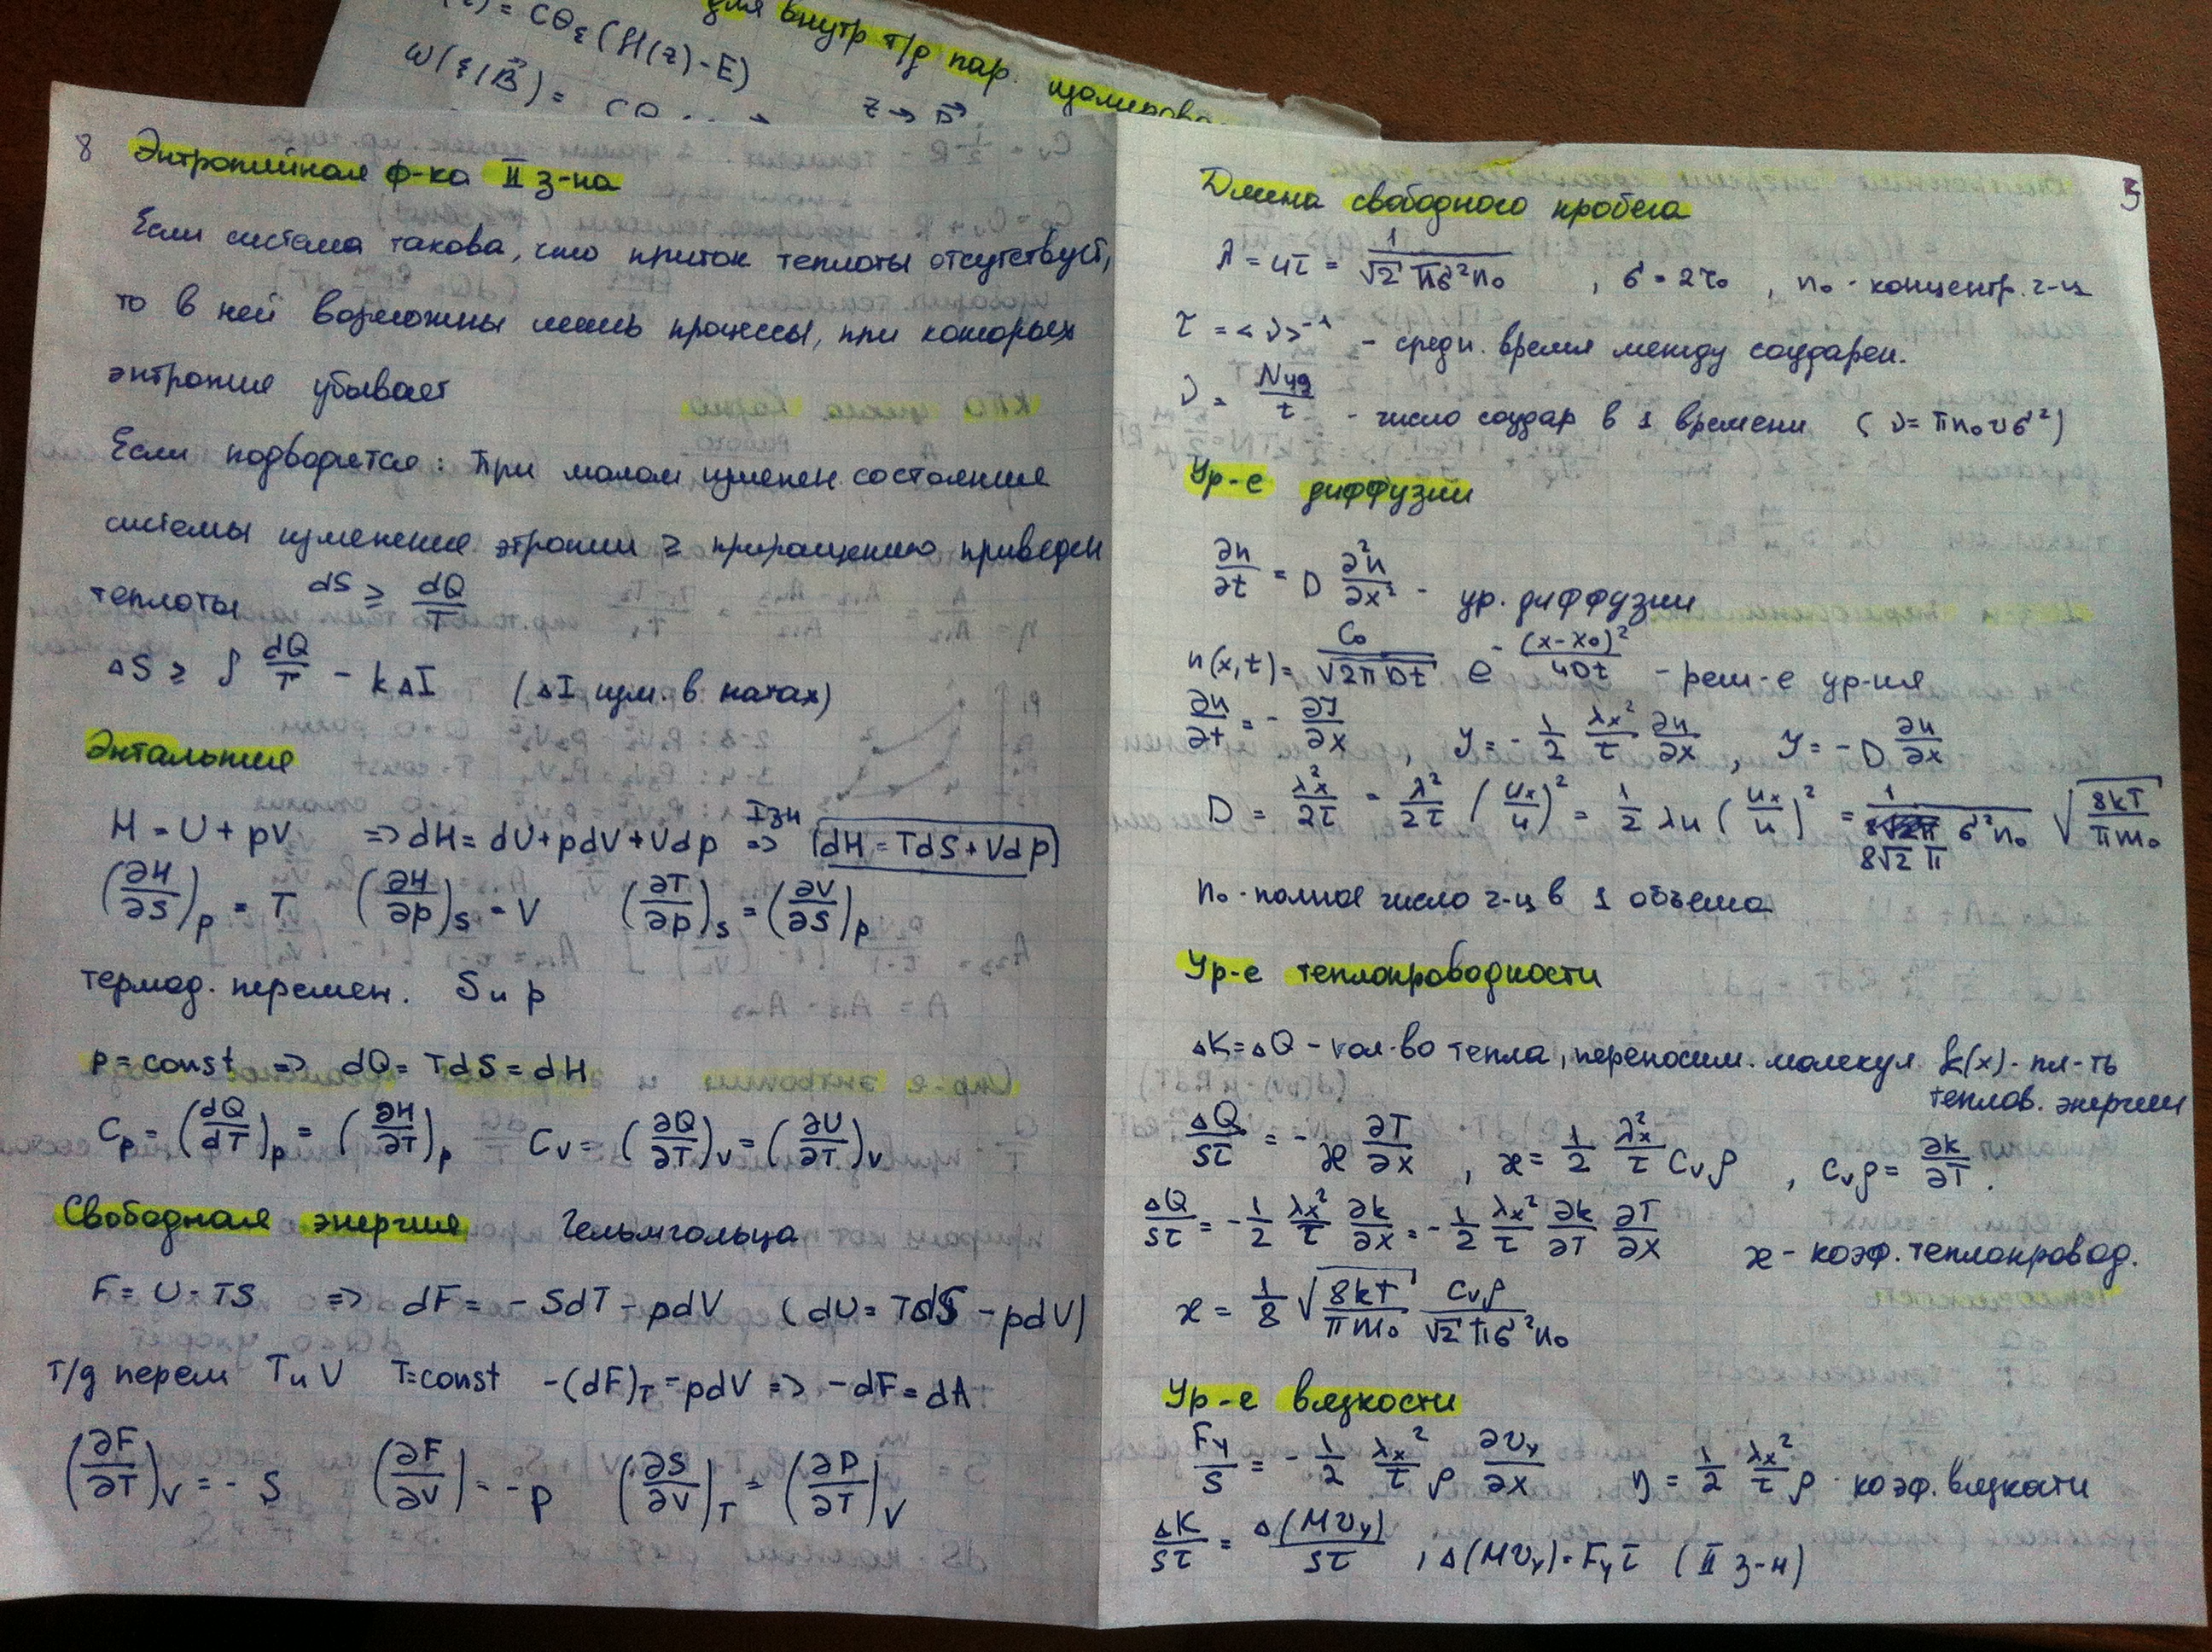 для внутр т/д пар.
= CΘε(H(z)-E)
ω(ε|B⃗) =
z → B⃗
8
Энтропийная ф-ка II з-на
Если система такова, что приток теплоты отсутствует,
то в ней возможны лишь процессы, при которых
энтропия убывает
Если подводится: При малом изменен. состояния
системы изменение этропии ≥ приращению приведен
теплоты dS ≥ dQ/T
ΔS ≥ ∫ dQ/T - kΔI (ΔI изм. в натах)
Энтальпия
H = U + pV => dH = dU + pdV + Vdp Iзн => dH = TdS + Vdp
(∂H/∂S)p = T (∂H/∂p)s = V (∂T/∂p)s = (∂V/∂S)p
термод. перемен. S и p
p = const => dQ = TdS = dH
Cp = (dQ/dT)p = (∂H/∂T)p Cv = (∂Q/∂T)v = (∂U/∂T)v
Свободная энергия Гельмгольца
F = U - TS => dF = - SdT - pdV (dU = TdS - pdV)
т/д перем T и V T = const -(dF)T = pdV => -dF = dA
(∂F/∂T)v = - S (∂F/∂V) = - p (∂S/∂V)T = (∂P/∂T)V
5
Длина свободного пробега
λ = uτ = 1/(√2 πσ²n₀) , σ = 2r₀ , n₀ - концентр. ч-ц
τ = <ν>⁻¹ - средн. время между соударен.
ν = Nуд/t - число соудар в 1 времени (ν = πn₀vσ²)
Ур-е диффузии
∂n/∂t = D ∂²n/∂x² - ур. диффузии
n(x,t) = C₀/√(2πDt) e^(-(x-x₀)²/4Dt) - реш-е ур-ия
∂n/∂t = - ∂J/∂x , J = - 1/2 λx²/τ ∂n/∂x , J = - D ∂n/∂x
D = λx²/2τ = λ²/2τ (ux/u)² = 1/2 λu (ux/u)² = 1/(8√2 π σ²n₀) √(8kT/πm₀)
n₀ - полное число ч-ц в 1 объема
Ур-е теплопроводности
ΔK = ΔQ - кол-во тепла, переносим. молекул k(x) - пл-ть
теплов. энергии
ΔQ/Sτ = - ϰ ∂T/∂x , ϰ = 1/2 λx²/τ Cvρ , Cvρ = ∂k/∂T .
ΔQ/Sτ = - 1/2 λx²/τ ∂k/∂x = - 1/2 λx²/τ ∂k/∂T ∂T/∂x ϰ - коэф. теплопровод.
ϰ = 1/8 √(8kT/πm₀) Cvρ/(√2 πσ²n₀)
Ур-е вязкости
Fy/S = - 1/2 λx²/τ ρ ∂vy/∂x η = 1/2 λx²/τ ρ - коэф. вязкости
ΔK/Sτ = Δ(Mvy)/Sτ , Δ(Mvy) = Fyτ (II з-н)